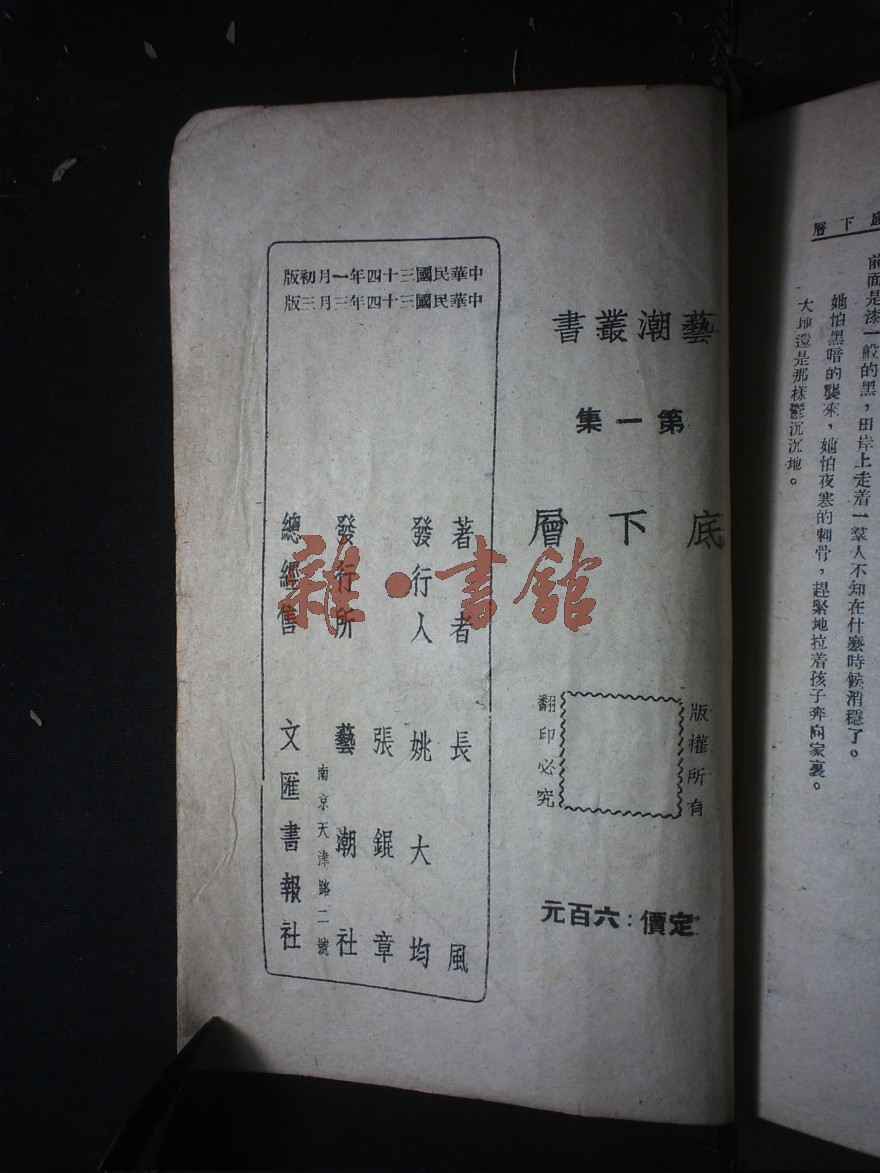 底下層
前面是漆一般的黑，田岸上走着一羣人不知在什麼時候消穩了。
她怕黑暗的襲來，她怕夜寒的刺骨，趕緊地拉着孩子奔向家裏。
大地還是那樣鬱沉沉地。
藝潮叢書
第一集
底下層
版權所有
翻印必究
定價：六百元
中華民國三十四年一月初版
中華民國三十四年三月三版
著者 長風
發行人 姚大均
張錕章
發行所 藝潮社
南京天津路二號
總經售 文匯書報社
雜·書館